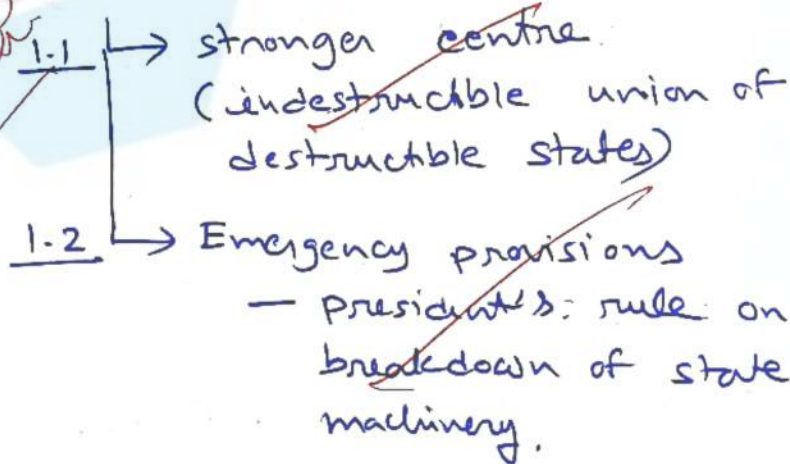 1.1 → stronger centre
(indestructible union of
destructible states)
1.2 → Emergency provisions
— president's rule on
breakdown of state
machinery.